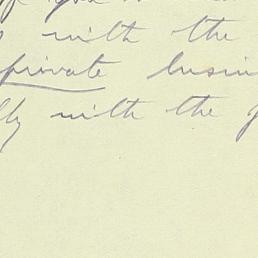 with the
private busin
lly with the